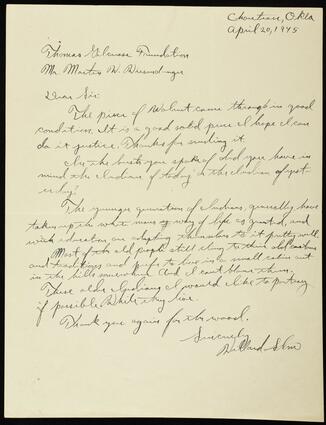 Chouteau, Okla
April 20, 1948
Thomas Gilcrease Foundation
Mr. Martin W. Wiesendanger
Dear Sir:
The piece of Walnut came through in good
condition. It is a good solid piece I hope I can
do it justice. Thanks for sending it.
In the busts you speak of did you have in
mind the Indian of today or the Indian of yest-
erday?
The younger generation of Indians, generally have
taken up the white mans way of life as granted, and
with education are adapting themselves to it pretty well.
Most of the old people still cling to their old customs
and teachings and prefer to live in a small cabin out
in the hills somewhere. And I cant blame them.
These older Indians I would like to portray
if possible while they live.
Thank you again for the wood.
Sincerely
Willard Stone